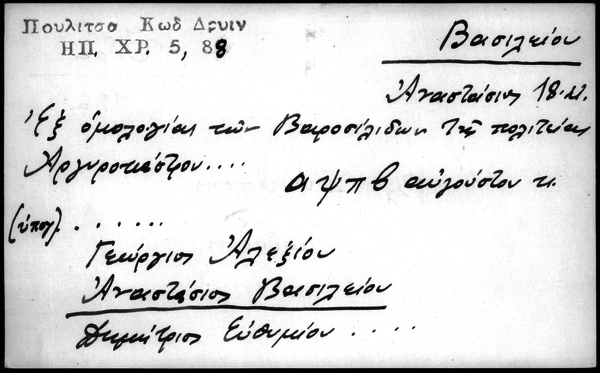 Πουλιτσα Κωδ Δρυιν
ΗΠ. ΧΡ. 5, 88
Βασιλείου
Ἀναστάσιος 18.αι.
Ἐξ ὁμολογίας τῶν Βαροσιλιδων τῆς πολιτείας
Αργυροκάστρου....
αψπβ αὐγούστου κ.
(ὑπογ). ......
Γεώργιος Ἀλεξίου
Ἀναστάσιος Βασιλείου
Δημήτριος Εὐθυμίου ....